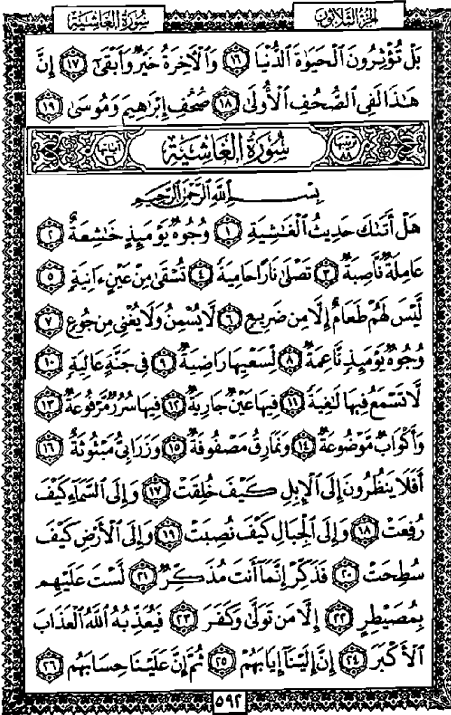 سُورَةُ الغَاشِيَةِ الجُزْءُ الثَّلَاثُونَ
بَلْ تُؤْثِرُونَ الْحَيَوٰةَ الدُّنْيَا ١٦ وَالْآخِرَةُ خَيْرٌ وَأَبْقَىٰ ١٧ إِنَّ
هَٰذَا لَفِي الصُّحُفِ الْأُولَىٰ ١٨ صُحُفِ إِبْرَاهِيمَ وَمُوسَىٰ ١٩
ترتيبها ٨٨ سُورَةُ الغَاشِيَةِ آياتها ٢٦
بِسْمِ اللَّهِ الرَّحْمَٰنِ الرَّحِيمِ
هَلْ أَتَىٰكَ حَدِيثُ الْغَٰشِيَةِ ١ وُجُوهٌ يَوْمَئِذٍ خَٰشِعَةٌ ٢
عَامِلَةٌ نَّاصِبَةٌ ٣ تَصْلَىٰ نَارًا حَامِيَةً ٤ تُسْقَىٰ مِنْ عَيْنٍ ءَانِيَةٍ ٥
لَّيْسَ لَهُمْ طَعَامٌ إِلَّا مِن ضَرِيعٍ ٦ لَّا يُسْمِنُ وَلَا يُغْنِي مِن جُوعٍ ٧
وُجُوهٌ يَوْمَئِذٍ نَّاعِمَةٌ ٨ لِّسَعْيِهَا رَاضِيَةٌ ٩ فِي جَنَّةٍ عَالِيَةٍ ١٠
لَّا تَسْمَعُ فِيهَا لَٰغِيَةً ١١ فِيهَا عَيْنٌ جَارِيَةٌ ١٢ فِيهَا سُرُرٌ مَّرْفُوعَةٌ ١٣
وَأَكْوَابٌ مَّوْضُوعَةٌ ١٤ وَنَمَارِقُ مَصْفُوفَةٌ ١٥ وَزَرَابِيُّ مَبْثُوثَةٌ ١٦
أَفَلَا يَنظُرُونَ إِلَى الْإِبِلِ كَيْفَ خُلِقَتْ ١٧ وَإِلَى السَّمَاءِ كَيْفَ
رُفِعَتْ ١٨ وَإِلَى الْجِبَالِ كَيْفَ نُصِبَتْ ١٩ وَإِلَى الْأَرْضِ كَيْفَ
سُطِحَتْ ٢٠ فَذَكِّرْ إِنَّمَا أَنتَ مُذَكِّرٌ ٢١ لَّسْتَ عَلَيْهِم
بِمُصَيْطِرٍ ٢٢ إِلَّا مَن تَوَلَّىٰ وَكَفَرَ ٢٣ فَيُعَذِّبُهُ اللَّهُ الْعَذَابَ
الْأَكْبَرَ ٢٤ إِنَّ إِلَيْنَا إِيَابَهُمْ ٢٥ ثُمَّ إِنَّ عَلَيْنَا حِسَابَهُم ٢٦
٥٩٢